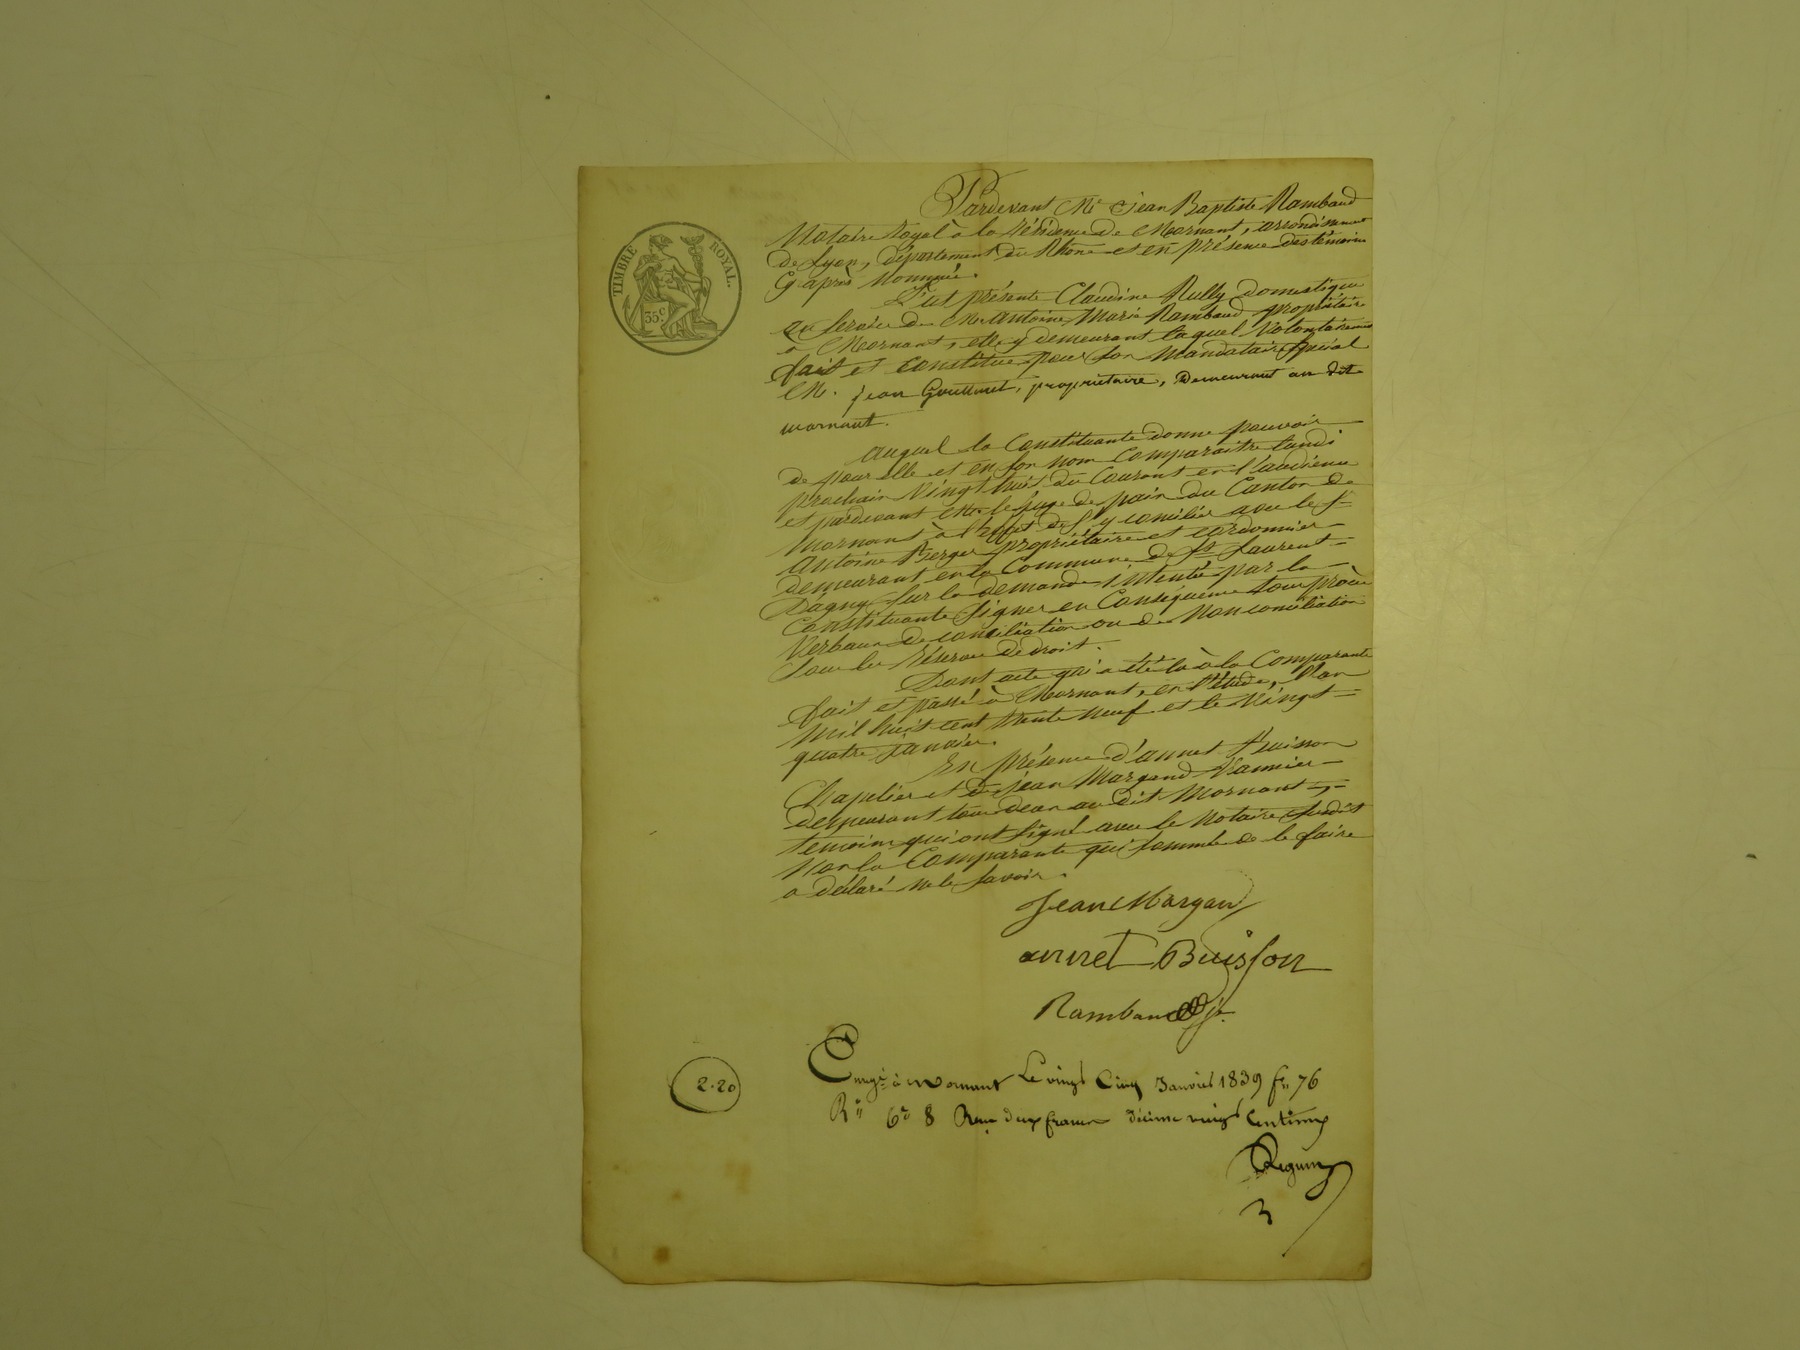 TIMBRE ROYAL.
35 c
Pardevant Me Jean Baptiste Rambaud
Notaire royal à la résidence de Mornant, arrondissement
de Lyon, département du Rhône et en présence des témoins
Cy après nommés.
S'est présente Claudine Rully domestique
au service de Mr antoine Marie Rambaud propriétaire
à Mornant, elle y demeurant laquel volontairement
fait et constitue pour son mandataire spécial
M. jean Goultmet, propriétaire, Demeurant au dit
mornant.
auquel la Constituante donne pouvoir
de pour elle et en son nom Comparaitre lundi
prochain vingt huit du Courant en l'audience
et pardevant Mr le juge de paix du Canton de
Mornant à l'effet de s'y concilier avec le Sr
antoine Berger propriétaire et cordonnier
demeurant en la Commune de St Laurent =
D'agny sur la demande intentée par la
Constituante signer en Conséquence tous procès
Verbaux de conciliation ou de Non conciliation
sous les réserves de droit.
Dont acte qui a été lu à la Comparante
fait et passé à Mornant, en l'étude, l'an
mil huit cent trente neuf et le vingt =
quatre janvier.
En présence d'annet Buisson
Chapelier et de jean Margand Vannier
demeurant tous deux au dit Mornant,
temoins qui ont signé avec le Notaire susdit
Non la Comparante qui sommée de le faire
a déclaré ne le savoir.
Jean Margand
annet Buisson
Rambaud
2.20
Enregé à Mornant Le vingt Cinq Janvier 1839 fo 76
Ro Ce 8 Reçu deux francs décime vingt Centimes